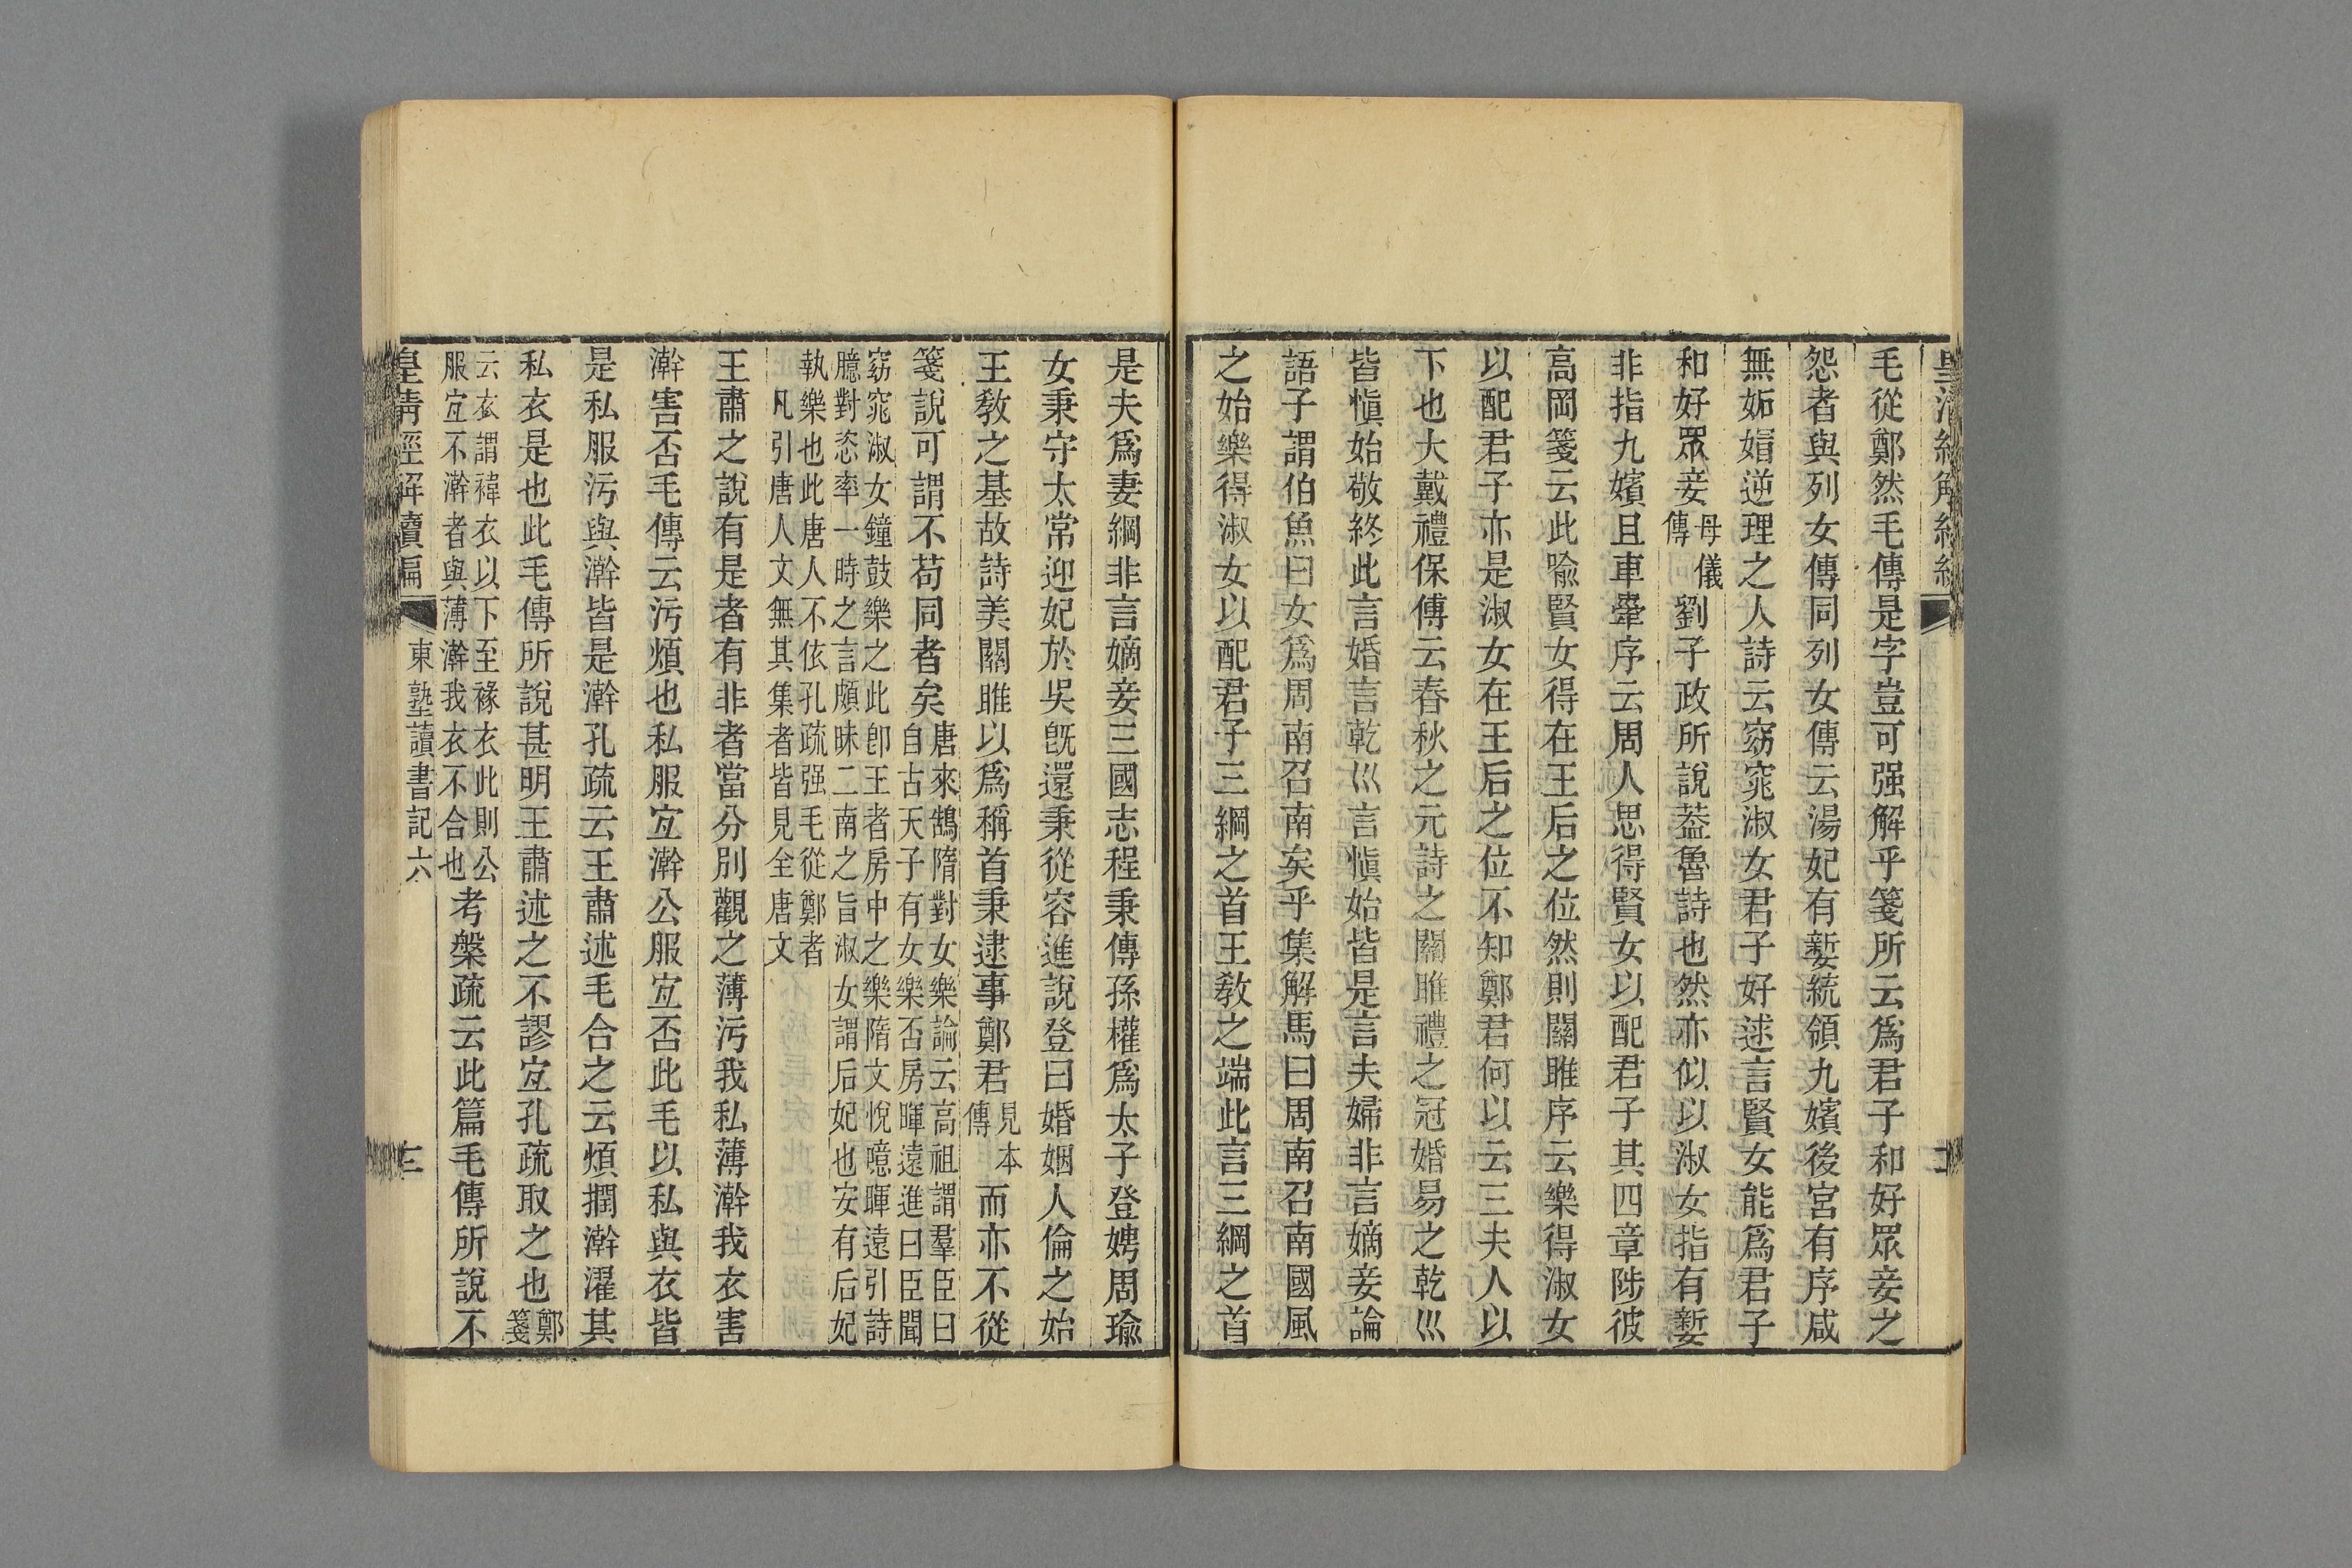 毛從鄭然毛傳是字豈可强解乎箋所云爲君子和好眾妾之
怨者與列女傳同列女傳云湯妃有㜪統領九嬪後宮有序咸
無妬媢逆理之人詩云窈窕淑女君子好逑言賢女能爲君子
和好眾妾母儀傳劉子政所說葢魯詩也然亦似以淑女指有㜪
非指九嬪且車舝序云周人思得賢女以配君子其四章陟彼
高岡箋云此喻賢女得在王后之位然則關雎序云樂得淑女
以配君子亦是淑女在王后之位不知鄭君何以云三夫人以
下也大戴禮保傅云春秋之元詩之關雎禮之冠婚易之乾巛
皆愼始敬終此言婚言乾巛言愼始皆是言夫婦非言嫡妾論
語子謂伯魚曰女爲周南召南矣乎集解馬曰周南召南國風
之始樂得淑女以配君子三綱之首王敎之端此言三綱之首
是夫爲妻綱非言嫡妾三國志程秉傳孫權爲太子登娉周瑜
女秉守太常迎妃於吳旣還秉從容進說登曰婚姻人倫之始
王敎之基故詩美關雎以爲稱首秉逮事鄭君見本傳而亦不從
箋說可謂不苟同者矣唐來鵠隋對女樂論云高祖謂羣臣曰
自古天子有女樂否房暉遠進曰臣聞
窈窕淑女鐘鼓樂之此卽王者房中之樂隋文悅噫暉遠引詩
臆對恣率一時之言頗昧二南之旨淑女謂后妃也安有后妃
執樂也此唐人不依孔疏强毛從鄭者
凡引唐人文無其集者皆見全唐文
王肅之說有是者有非者當分別觀之薄污我私薄澣我衣害
澣害否毛傳云污煩也私服宜澣公服宜否此毛以私與衣皆
是私服污與澣皆是澣孔疏云王肅述毛合之云煩撋澣濯其
私衣是也此毛傳所說甚明王肅述之不謬宜孔疏取之也鄭箋
云衣謂褘衣以下至褖衣此則公
服宜不澣者與薄澣我衣不合也考槃疏云此篇毛傳所說不
皇清經解續編
東塾讀書記六
三